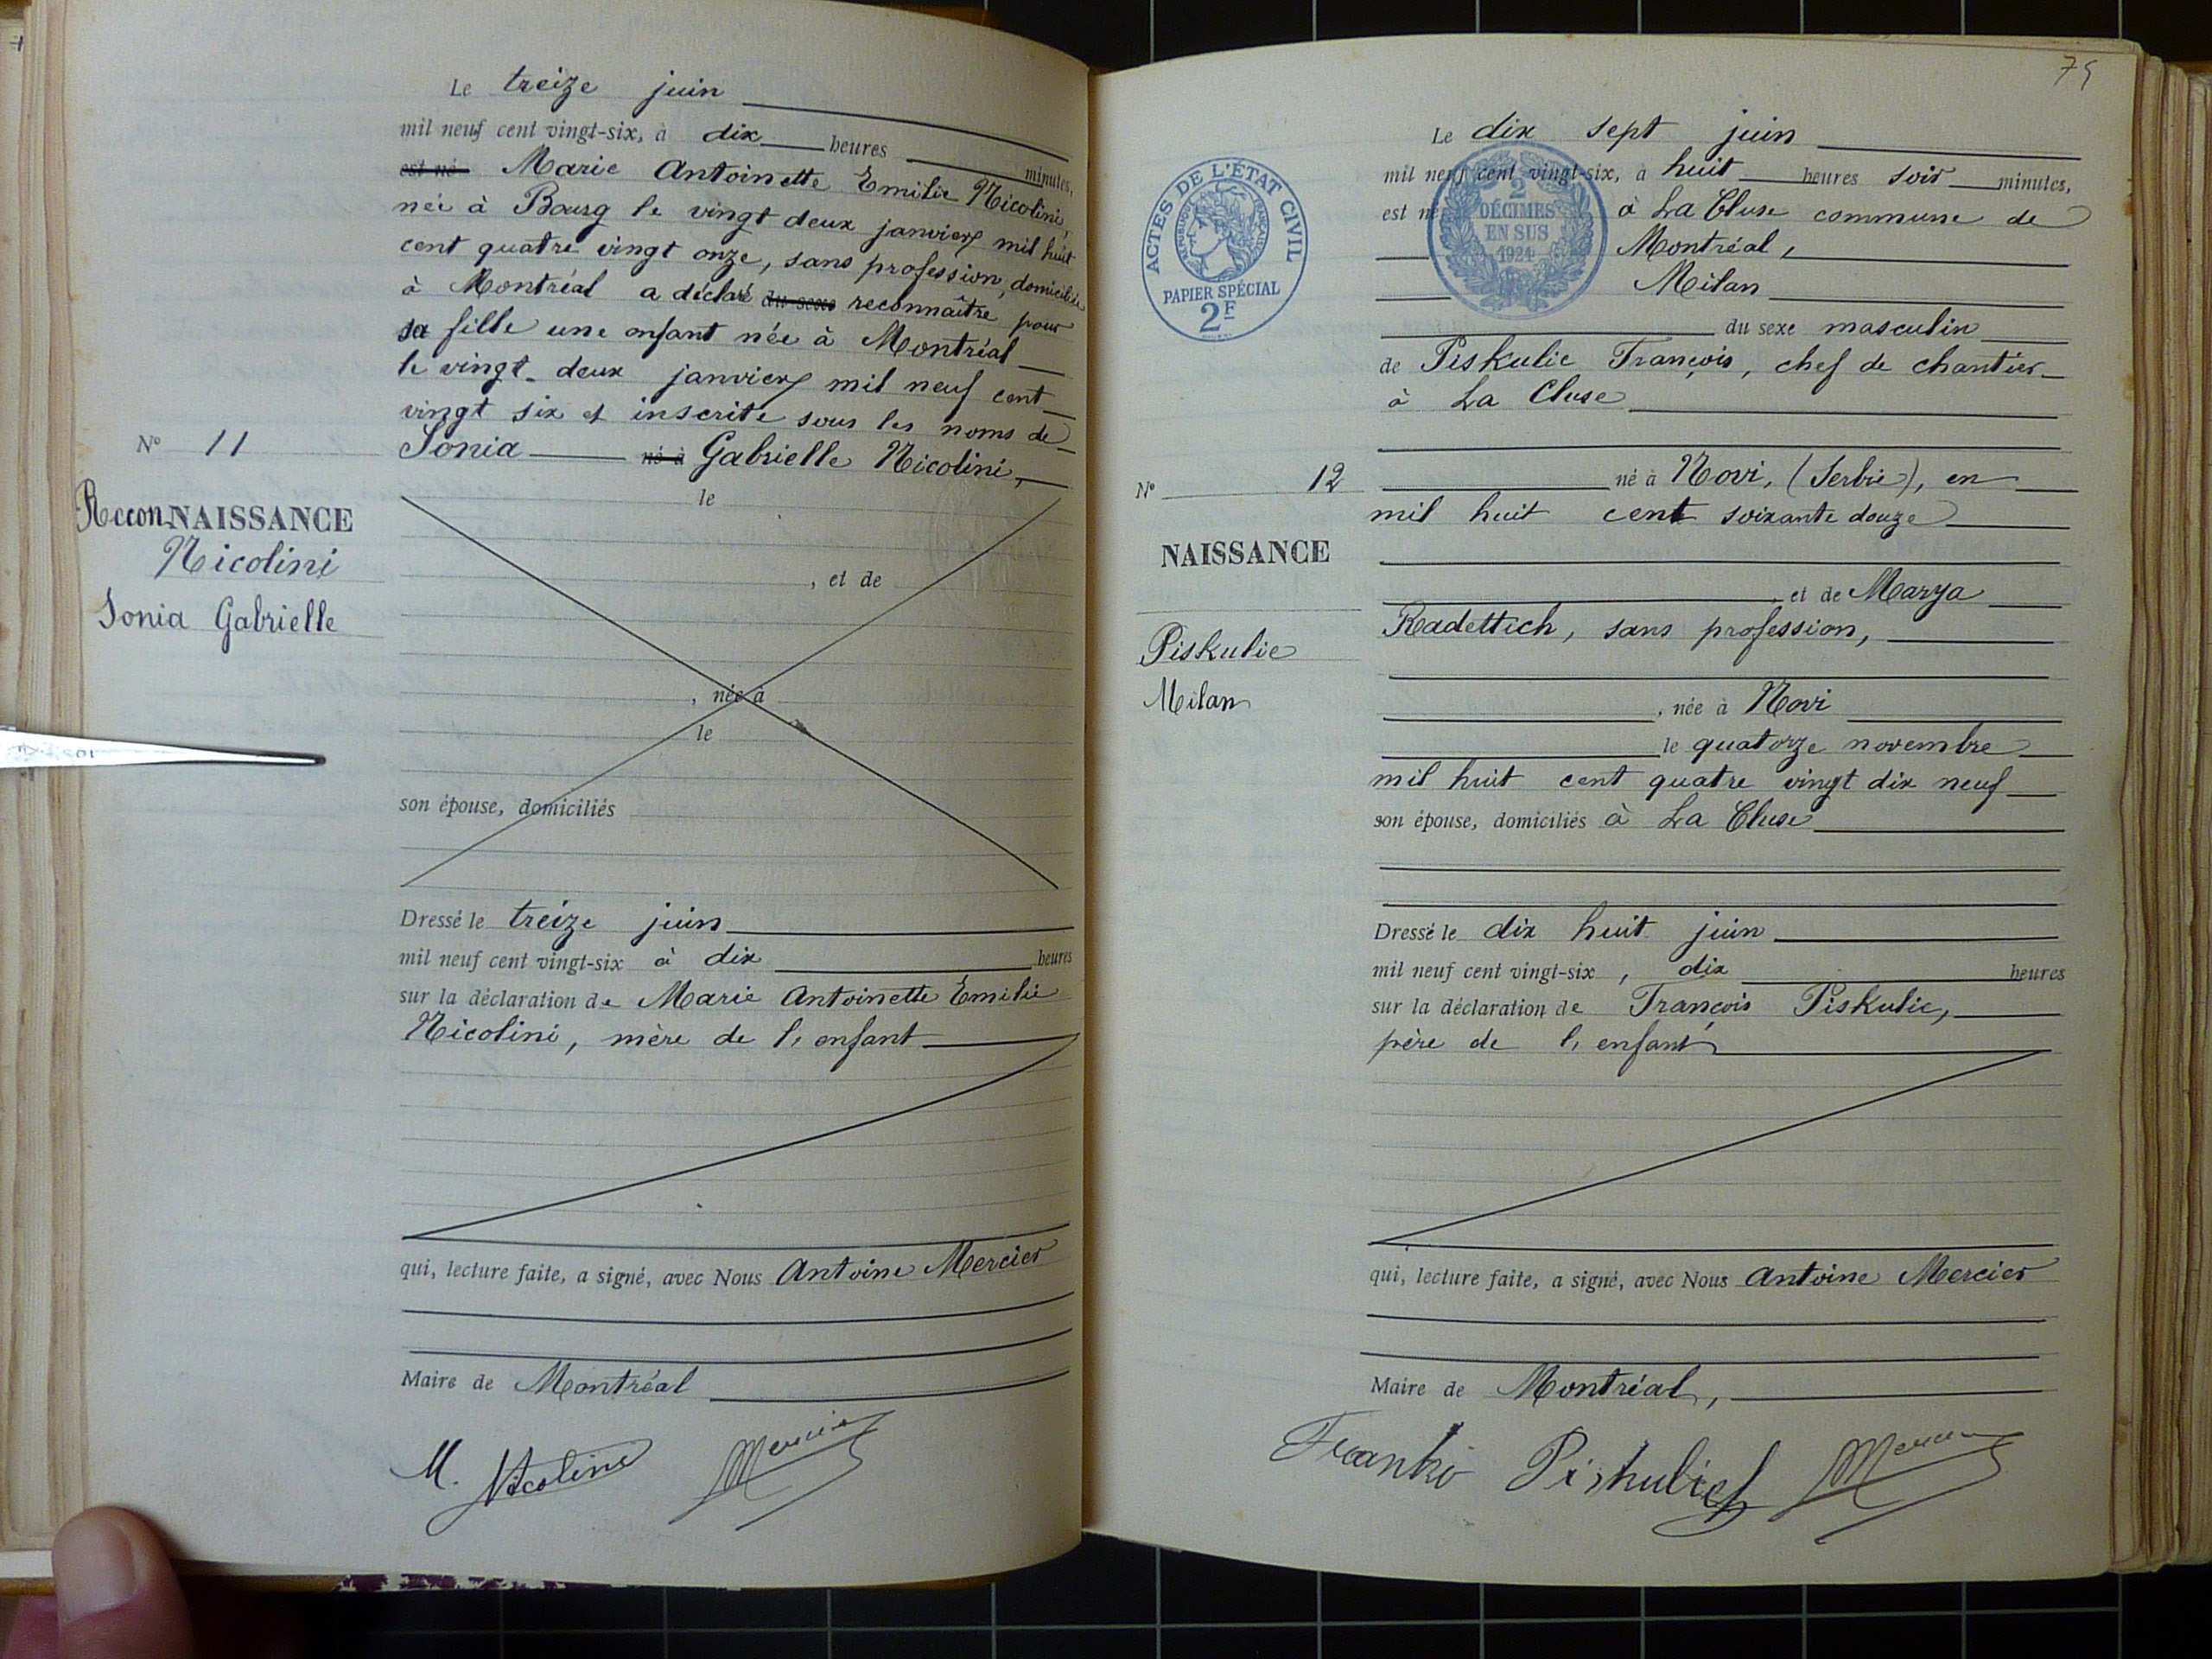 Le treize juin
mil neuf cent vingt-six, à dix heures minutes,
est né Marie Antoinette Emilie Nicolini,
née à Bourg le vingt deux janvier mil huit
cent quatre vingt onze, sans profession, domiciliée
à Montréal a déclaré du sexe reconnaître pour
sa fille une enfant née à Montréal
le vingt-deux janvier mil neuf cent
vingt six et inscrite sous les noms de
Sonia né à Gabrielle Nicolini,
le
, et de
, née à
le
son épouse, domiciliés
N° 11
ReconNAISSANCE
Nicolini
Sonia Gabrielle
Dressé le treize juin
mil neuf cent vingt-six à dix heures
sur la déclaration de Marie Antoinette Emilie
Nicolini, mère de l'enfant
qui, lecture faite, a signé, avec Nous Antoine Mercier
Maire de Montréal
M. Nicolini Mercier
75
ACTES DE L'ÉTAT CIVIL
RÉPUBLIQUE FRANÇAISE
PAPIER SPÉCIAL
2F
2
DÉCIMES
EN SUS
1924
Le dix sept juin
mil neuf cent vingt-six, à huit heures soir minutes,
est né à La Cluse commune de
Montréal,
Milan
du sexe masculin
de Piskulic François, chef de chantier
à La Cluse
né à Novi, (Serbie), en
mil huit cent soixante douze
et de Marya
Radettich, sans profession,
, née à Novi
le quatorze novembre
mil huit cent quatre vingt dix neuf
son épouse, domiciliés à La Cluse
N° 12
NAISSANCE
Piskulic
Milan
Dressé le dix huit juin
mil neuf cent vingt-six, dix heures
sur la déclaration de François Piskulic,
père de l'enfant
qui, lecture faite, a signé, avec Nous Antoine Mercier
Maire de Montréal,
Franko Piskulich Mercier